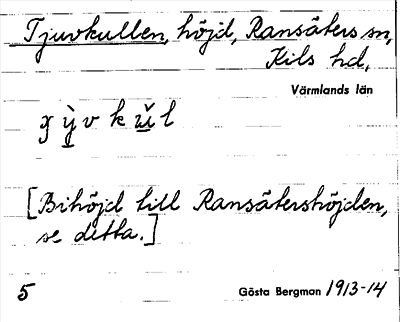 Tjuvkullen, höjd, Ransäters sn,
Kils hd,
Värmlands län
[Bihöjd till Ransätershöjden,
se detta.]
5
Gösta Bergman 1913-14